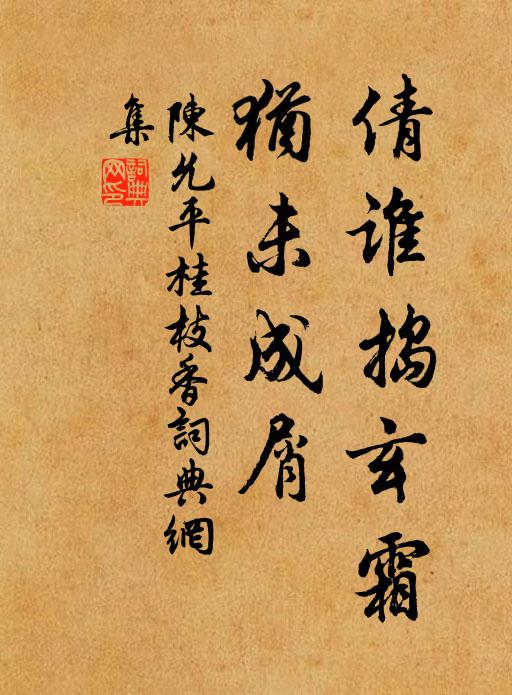 倩誰搗玄霜
猶未成屑
陳允平桂枝香詞典網
集
詞典
网印